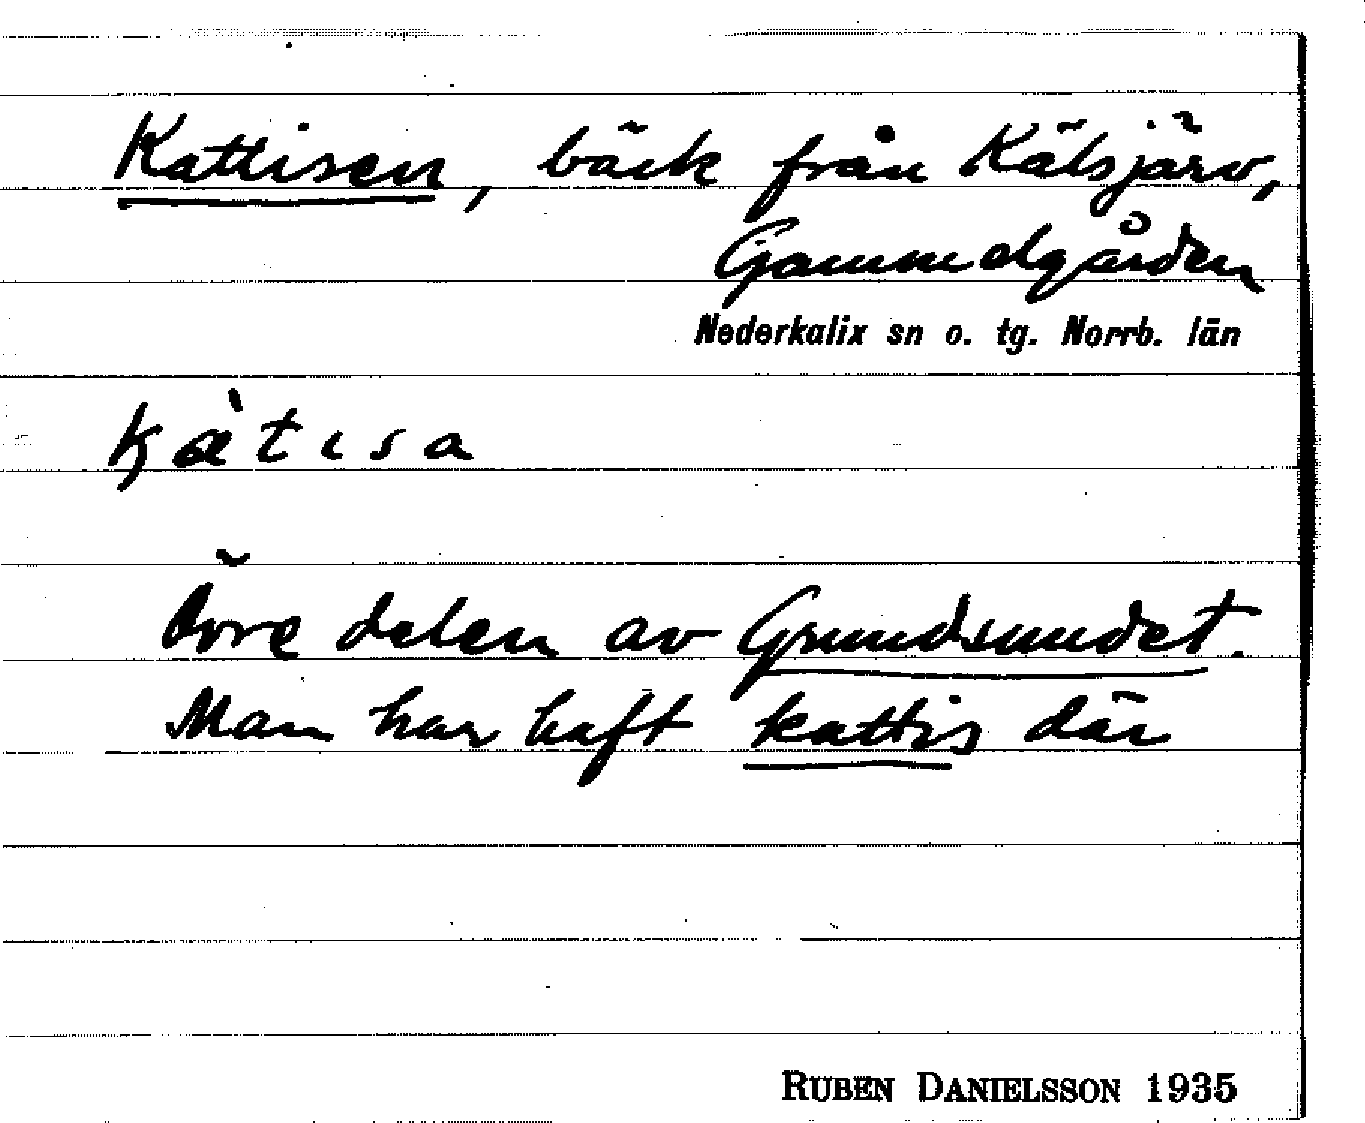 Kattisen, bäck från Kälsjärv,
Gammelgården
Nederkalix sn o. tg. Norrb. län
kàtısa
Övre delen av Grundsundet.
Man har haft kattis där
RUBEN DANIELSSON 1935